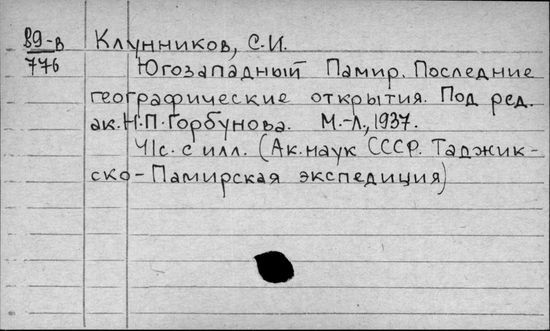 89-в Клунников, С.И.
776 Югозападный Памир. Последние
географические открытия. Под ред.
ак. Н.П. Горбунова. М.-Л., 1937.
41с. с илл. (Ак. наук СССР. Таджик-
ско-Памирская экспедиция)